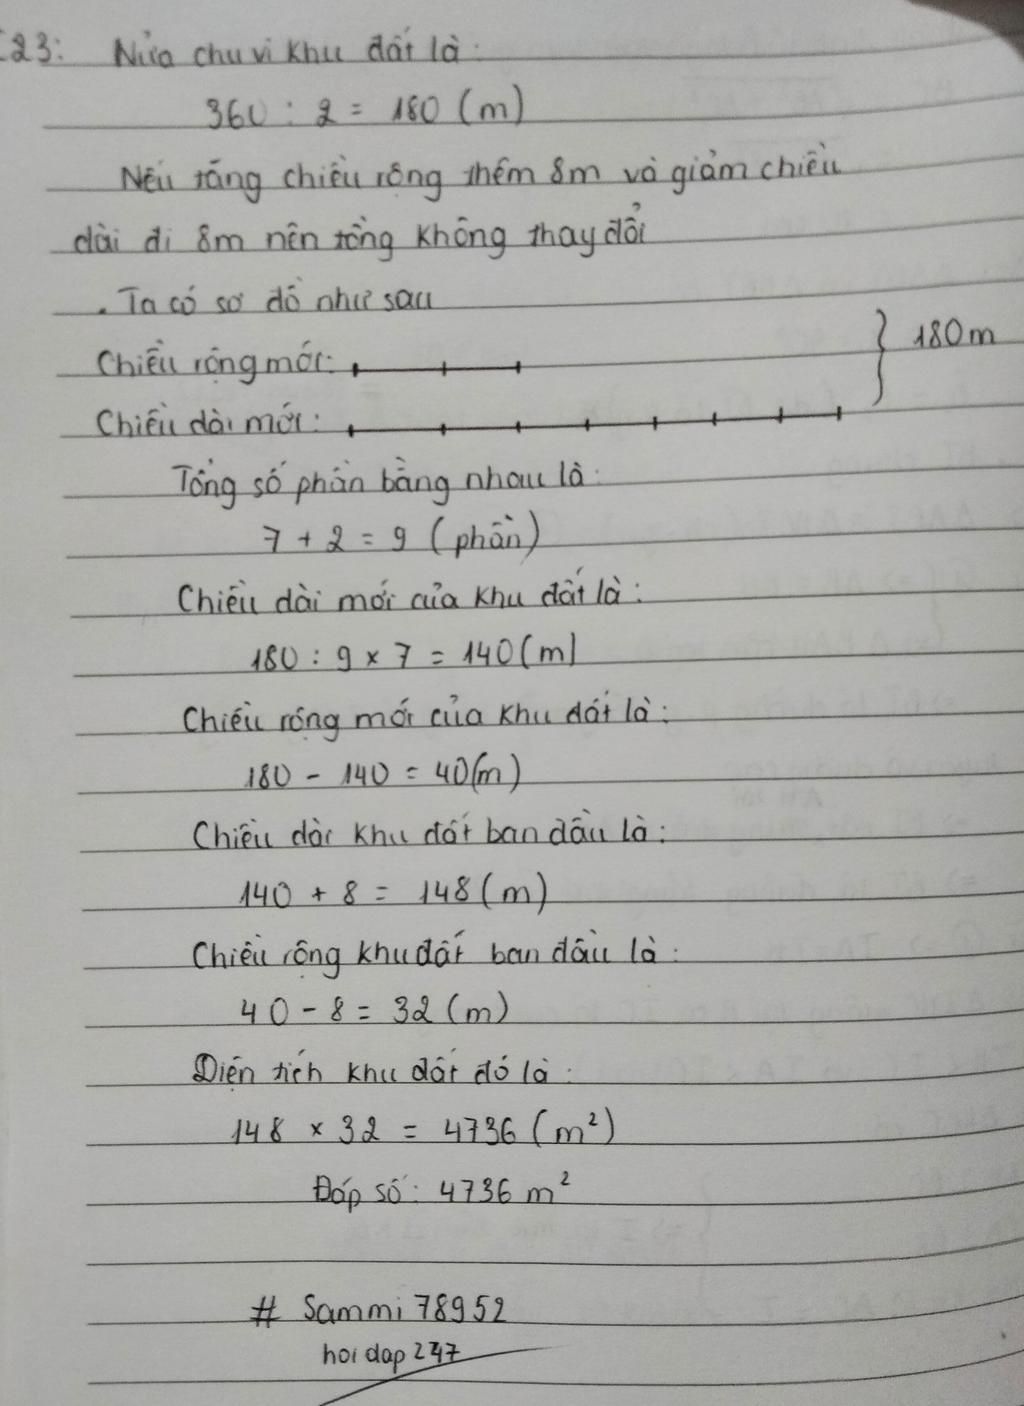 C23: Nửa chu vi khu đất là:
360 : 2 = 180 (m)
Nếu tăng chiều rộng thêm 8m và giảm chiều
dài đi 8m nên tổng không thay đổi
. Ta có sơ đồ như sau
Chiều rộng mới: } 180m
Chiều dài mới:
Tổng số phần bằng nhau là:
7 + 2 = 9 (phần)
Chiều dài mới của khu đất là:
180 : 9 x 7 = 140 (m)
Chiều rộng mới của khu đất là:
180 - 140 = 40 (m)
Chiều dài khu đất ban đầu là:
140 + 8 = 148 (m)
Chiều rộng khu đất ban đầu là:
40 - 8 = 32 (m)
Diện tích khu đất đó là:
148 x 32 = 4736 (m²)
Đáp số: 4736 m²
# Sammi 78952
hoi dap 247